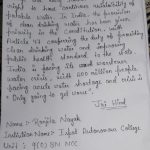 right to have continuous availability of
potable water. In India, the provision
of clean drinking water has been given
priority in the Constitution, with
Article 47 conferring the duty of providing
clean drinking water and improving
public health standards to the state.
India is facing its worst
water crisis, with 600 million people
facing acute water shortage and crisis is
"Only going to get worse".
Jai Hind
Name:- Nayak
Institution Name:- Ispat Autonomous College
Unit:- BN NCC